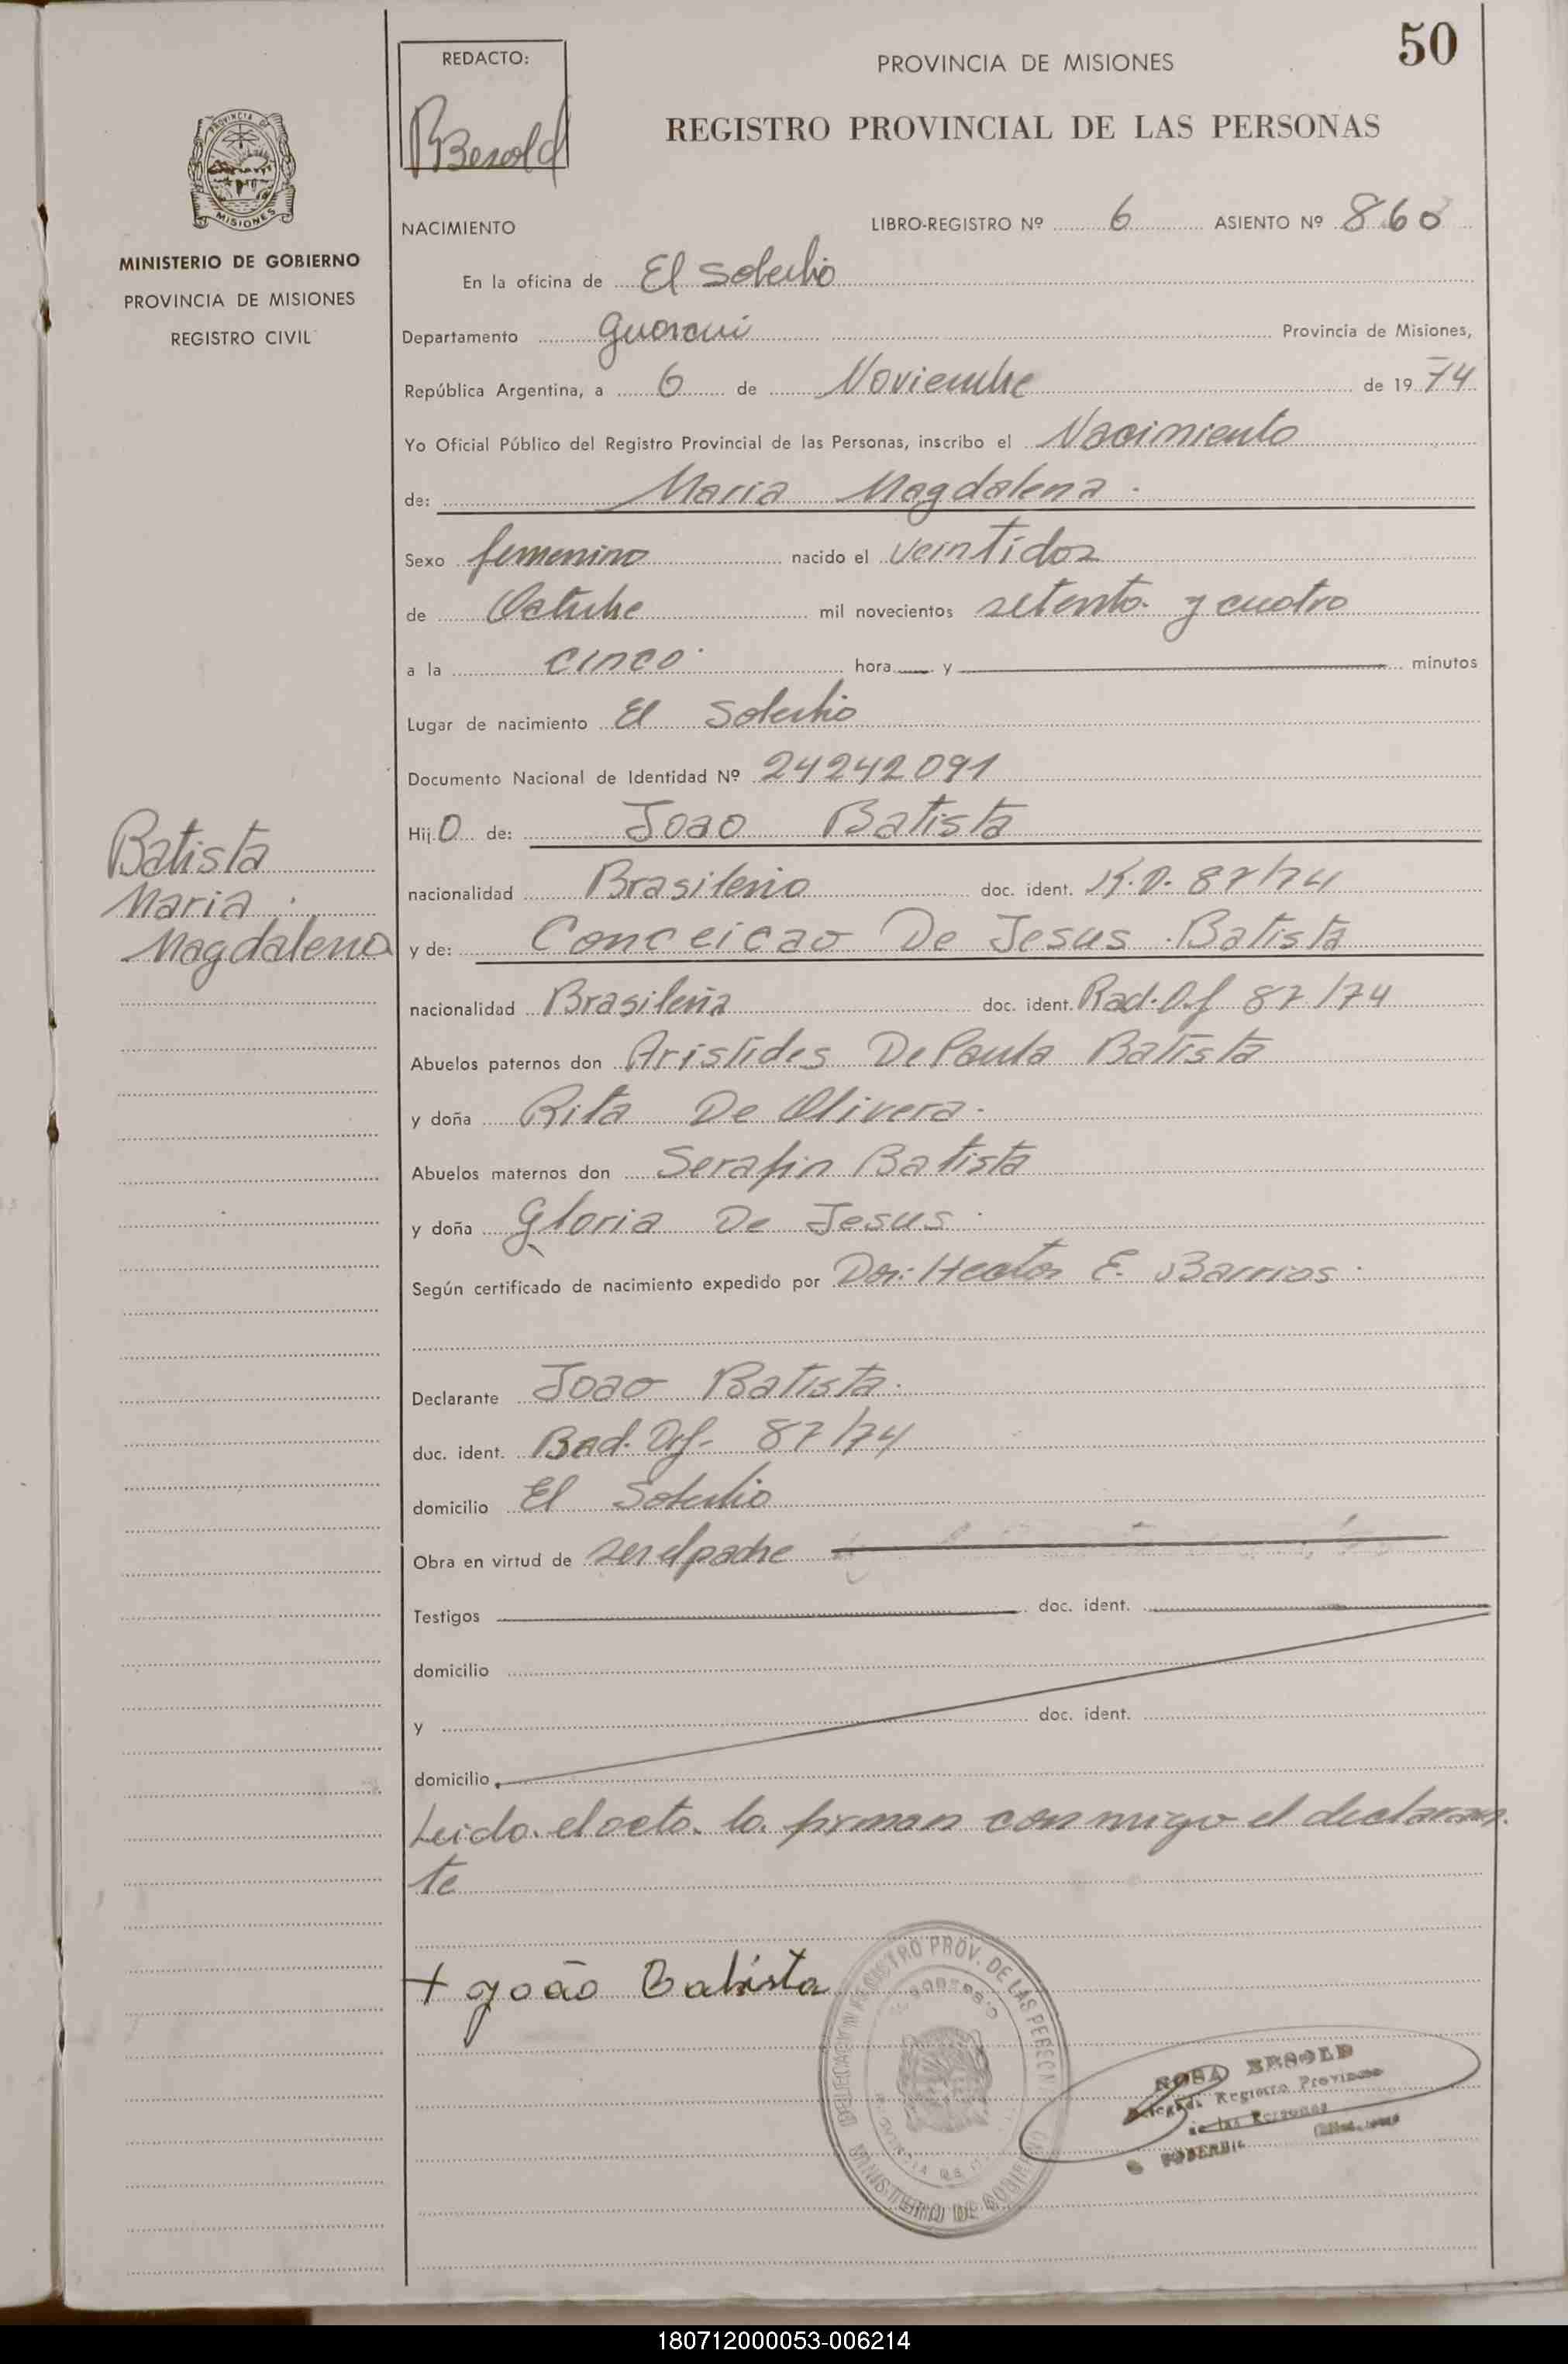 50
REDACTO:
RBesold
PROVINCIA DE MISIONES
REGISTRO PROVINCIAL DE LAS PERSONAS
PROVINCIA DE
MISIONES
MINISTERIO DE GOBIERNO
PROVINCIA DE MISIONES
REGISTRO CIVIL
NACIMIENTO
LIBRO-REGISTRO Nº 6 ASIENTO Nº 860
En la oficina de El Soberbio
Departamento Guarani Provincia de Misiones,
República Argentina, a 6 de Noviembre de 1974
Yo Oficial Público del Registro Provincial de las Personas, inscribo el Nacimiento
de: Maria Magdalena.
Sexo femenino nacido el veintidos
de Octubre mil novecientos setenta y cuatro
a la cinco hora y minutos
Lugar de nacimiento El Soberbio
Documento Nacional de Identidad Nº 24242091
Hijo de: Joao Batista
nacionalidad Brasilenio doc. ident. 87/74
y de: Conceicao De Jesus Batista
nacionalidad Brasileña doc. ident. Rad. Of 87/74
Abuelos paternos don Aristides De Paula Batista
y doña Rita De Olivera.
Abuelos maternos don Serafin Batista
y doña Gloria De Jesus.
Según certificado de nacimiento expedido por Dor: Hector E. Barrios.
Declarante Joao Batista.
doc. ident. Rad. Of. 87/74
domicilio El Soberbio
Obra en virtud de ser el padre
Testigos doc. ident.
domicilio
y doc. ident.
domicilio
Leido el acta la firman conmigo el declaran-
te
+ João Batista
Batista
Maria
Magdalena
DELEGACION REGISTRO PROV. DE LAS PERSONAS
MINISTERIO DE GOBIERNO
ROSA BESOLD
Delegada Registro Provincial
de las Personas
SOBERBIO
180712000053-006214